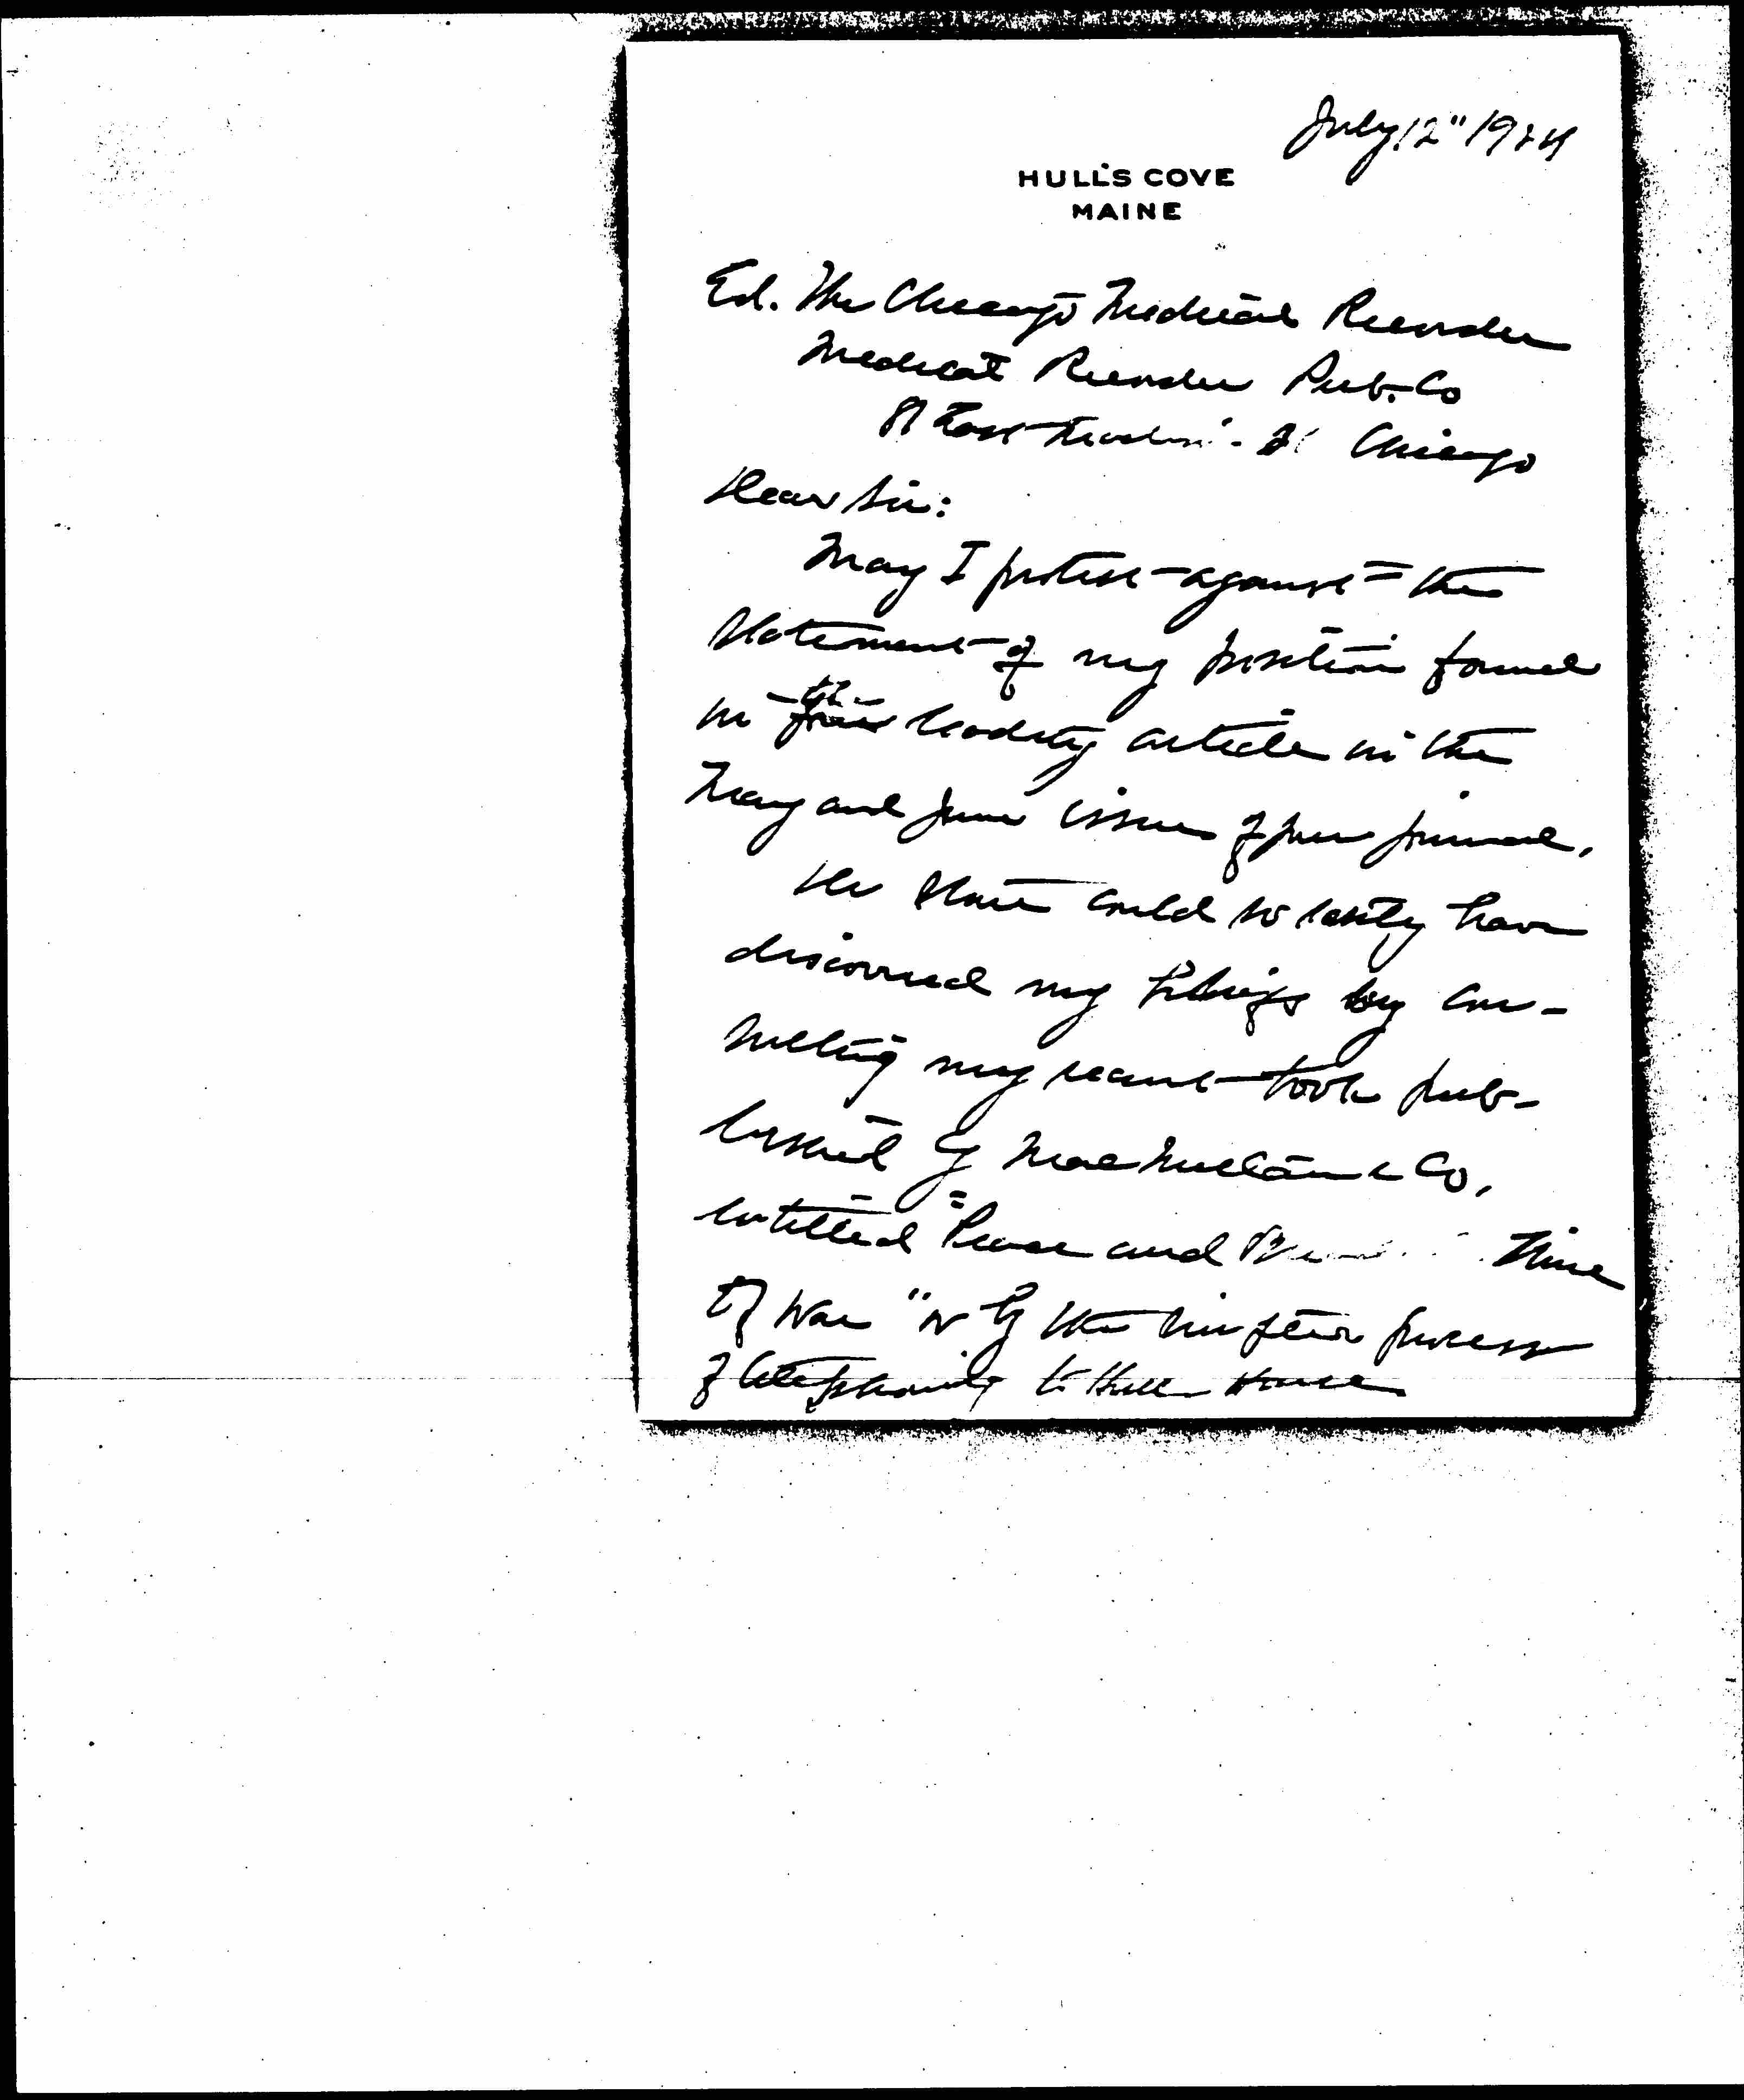 July 12" 1924
HULL'S COVE
MAINE
Ed. The Chicago Medical Recorder
Medical Recorder Pub. Co
Chicago
Dear Sir:
May I protest against the
statement of my position found
in the leading article in the
May and June issue of your journal.
could so easily have
discovered my beliefs by con-
sulting my recent book pub-
lished by MacMillan & Co,
entitled "Peace and Time
of War" or by the simpler process
of telephoning to Hull House